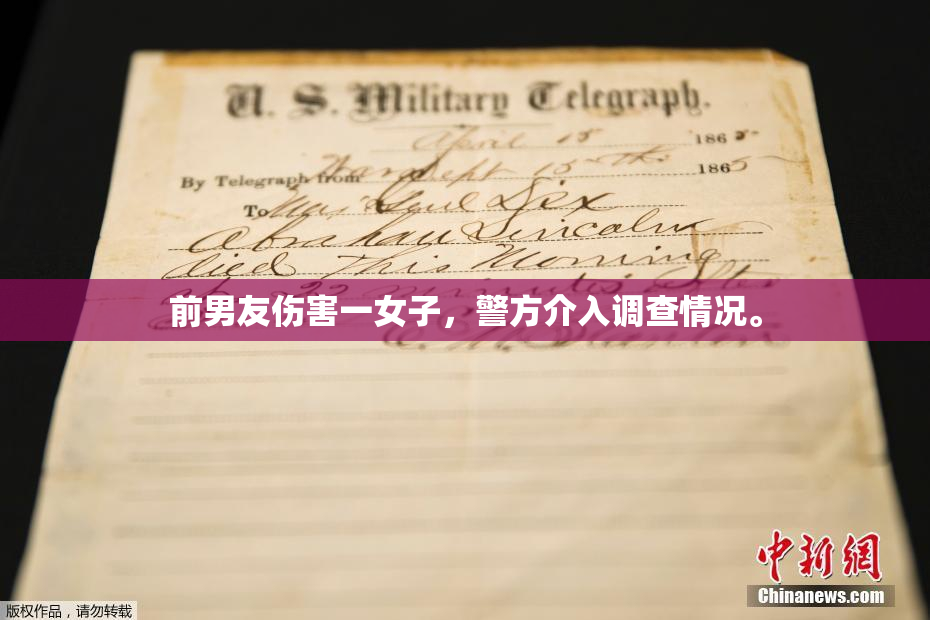 U. S. Military Telegraph.
April 15 1865.
By Telegraph from War Dept 15th 1865
To Maj Genl Dix
Abraham Lincoln
died This Morning
前男友伤害一女子，警方介入调查情况。
中新网
Chinanews.com
版权作品，请勿转载